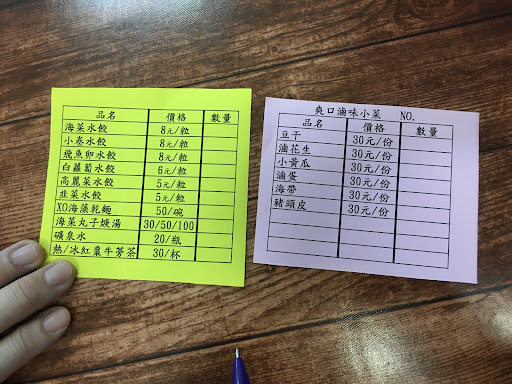 品名 價格 數量
海菜水餃 8元/粒
小卷水餃 8元/粒
飛魚卵水餃 8元/粒
白蘿蔔水餃 6元/粒
高麗菜水餃 5元/粒
韭菜水餃 5元/粒
XO海藻乾麵 50/碗
海菜丸子焿湯 30/50/100
礦泉水 20/瓶
熱/冰紅棗牛蒡茶 30/杯
爽口滷味小菜 NO.
品名 價格 數量
豆干 30元/份
滷花生 30元/份
小黃瓜 30元/份
滷蛋 30元/份
海帶 30元/份
豬頭皮 30元/份